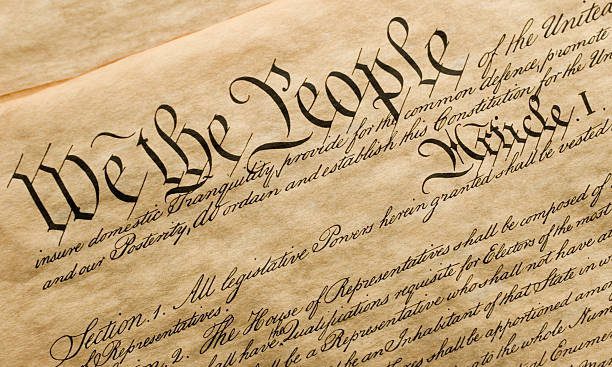 We the People of the United
insure domestic Tranquility, provide for the common defence, promote
and our Posterity, do ordain and establish this Constitution for the Uni
Article. I
Section. 1. All legislative Powers herein granted shall be vested
of Representatives.
2. The House of Representatives shall be composed of
shall have the Qualifications requisite for Electors of the most
shall be a Representative who shall not have at
be an Inhabitant of that State in w
shall be apportioned amon
to the whole Num
Enumer